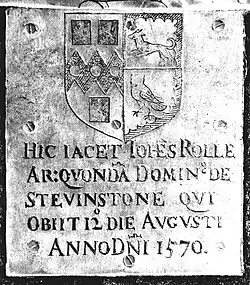 HIC IACET IOHES ROLLE
AR: QVONDA DOMIN9 DE
STEVINSTONE QVI
OBIIT 12o DIE AVGVSTI
ANNO DNI 1570.